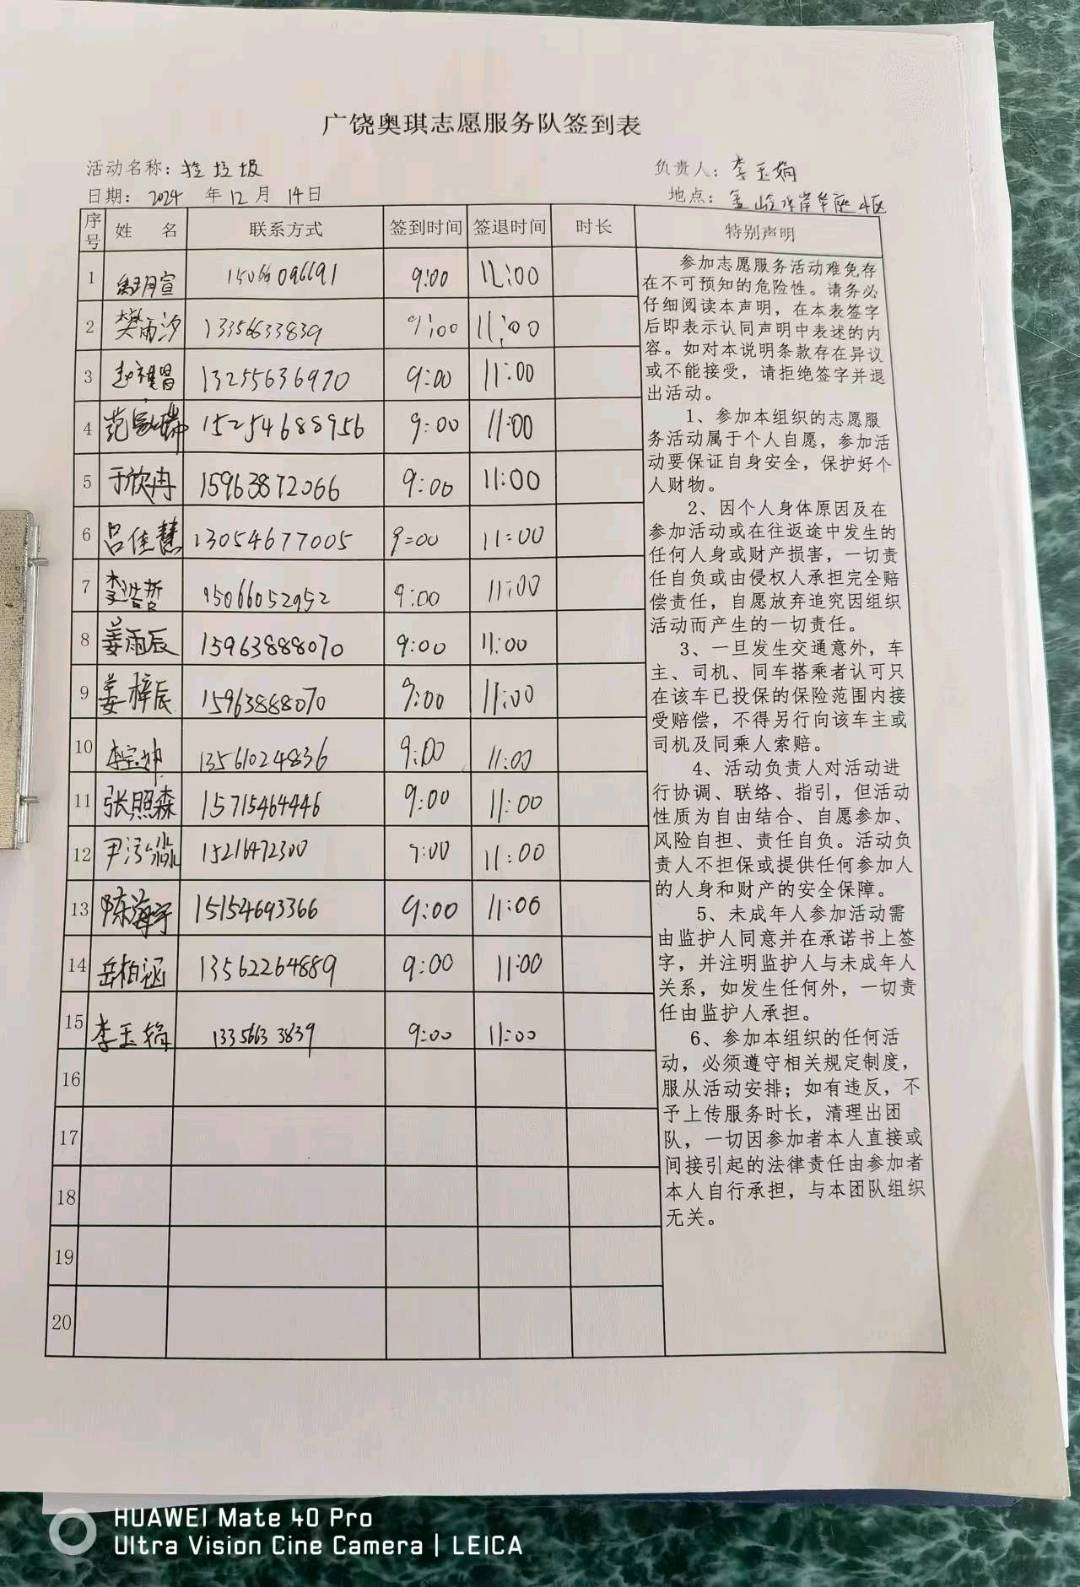 广饶奥琪志愿服务队签到表
活动名称：捡垃圾 负责人：李玉娟
日期：2024 年12 月 14日 地点：金岭水岸华庭小区
序号 姓 名 联系方式 签到时间 签退时间 时长 特别声明
1 月宣 15066096691 9:00 11:00
2 樊雨汐 13356633839 9:00 11:00
3 赵 昌 13255636970 9:00 11:00
4 范 15254688956 9:00 11:00
5 于欣冉 15963872066 9:00 11:00
6 吕佳慧 13054677005 9:00 11:00
7 李浩哲 15066052952 9:00 11:00
8 姜雨辰 15963888070 9:00 11:00
9 姜梓辰 15963888070 9:00 11:00
10 李 坤 13561024836 9:00 11:00
11 张照森 15715464446 9:00 11:00
12 尹 淼 15216472300 9:00 11:00
13 陈海宇 15154693366 9:00 11:00
14 岳柏涵 13562264889 9:00 11:00
15 李玉娟 13356633839 9:00 11:00
16
17
18
19
20
参加志愿服务活动难免存
在不可预知的危险性。请务必
仔细阅读本声明，在本表签字
后即表示认同声明中表述的内
容。如对本说明条款存在异议
或不能接受，请拒绝签字并退
出活动。
1、参加本组织的志愿服
务活动属于个人自愿，参加活
动要保证自身安全，保护好个
人财物。
2、因个人身体原因及在
参加活动或在往返途中发生的
任何人身或财产损害，一切责
任自负或由侵权人承担完全赔
偿责任，自愿放弃追究因组织
活动而产生的一切责任。
3、一旦发生交通意外，车
主、司机、同车搭乘者认可只
在该车已投保的保险范围内接
受赔偿，不得另行向该车主或
司机及同乘人索赔。
4、活动负责人对活动进
行协调、联络、指引，但活动
性质为自由结合、自愿参加、
风险自担、责任自负。活动负
责人不担保或提供任何参加人
的人身和财产的安全保障。
5、未成年人参加活动需
由监护人同意并在承诺书上签
字，并注明监护人与未成年人
关系，如发生任何外，一切责
任由监护人承担。
6、参加本组织的任何活
动，必须遵守相关规定制度，
服从活动安排；如有违反，不
予上传服务时长，清理出团
队，一切因参加者本人直接或
间接引起的法律责任由参加者
本人自行承担，与本团队组织
无关。
HUAWEI Mate 40 Pro
Ultra Vision Cine Camera | LEICA